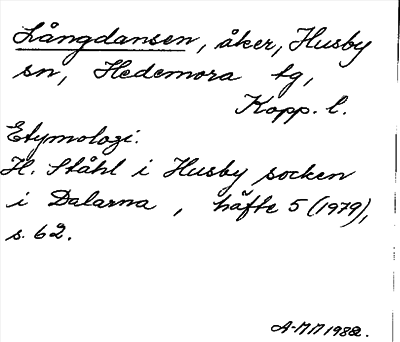 Långdansen, åker, Husby
sn, Hedemora tg,
Kopp. l.
Etymologi.
H. Ståhl i Husby socken
i Dalarna, häfte 5 (1979),
s. 62.
A-MM 1982.